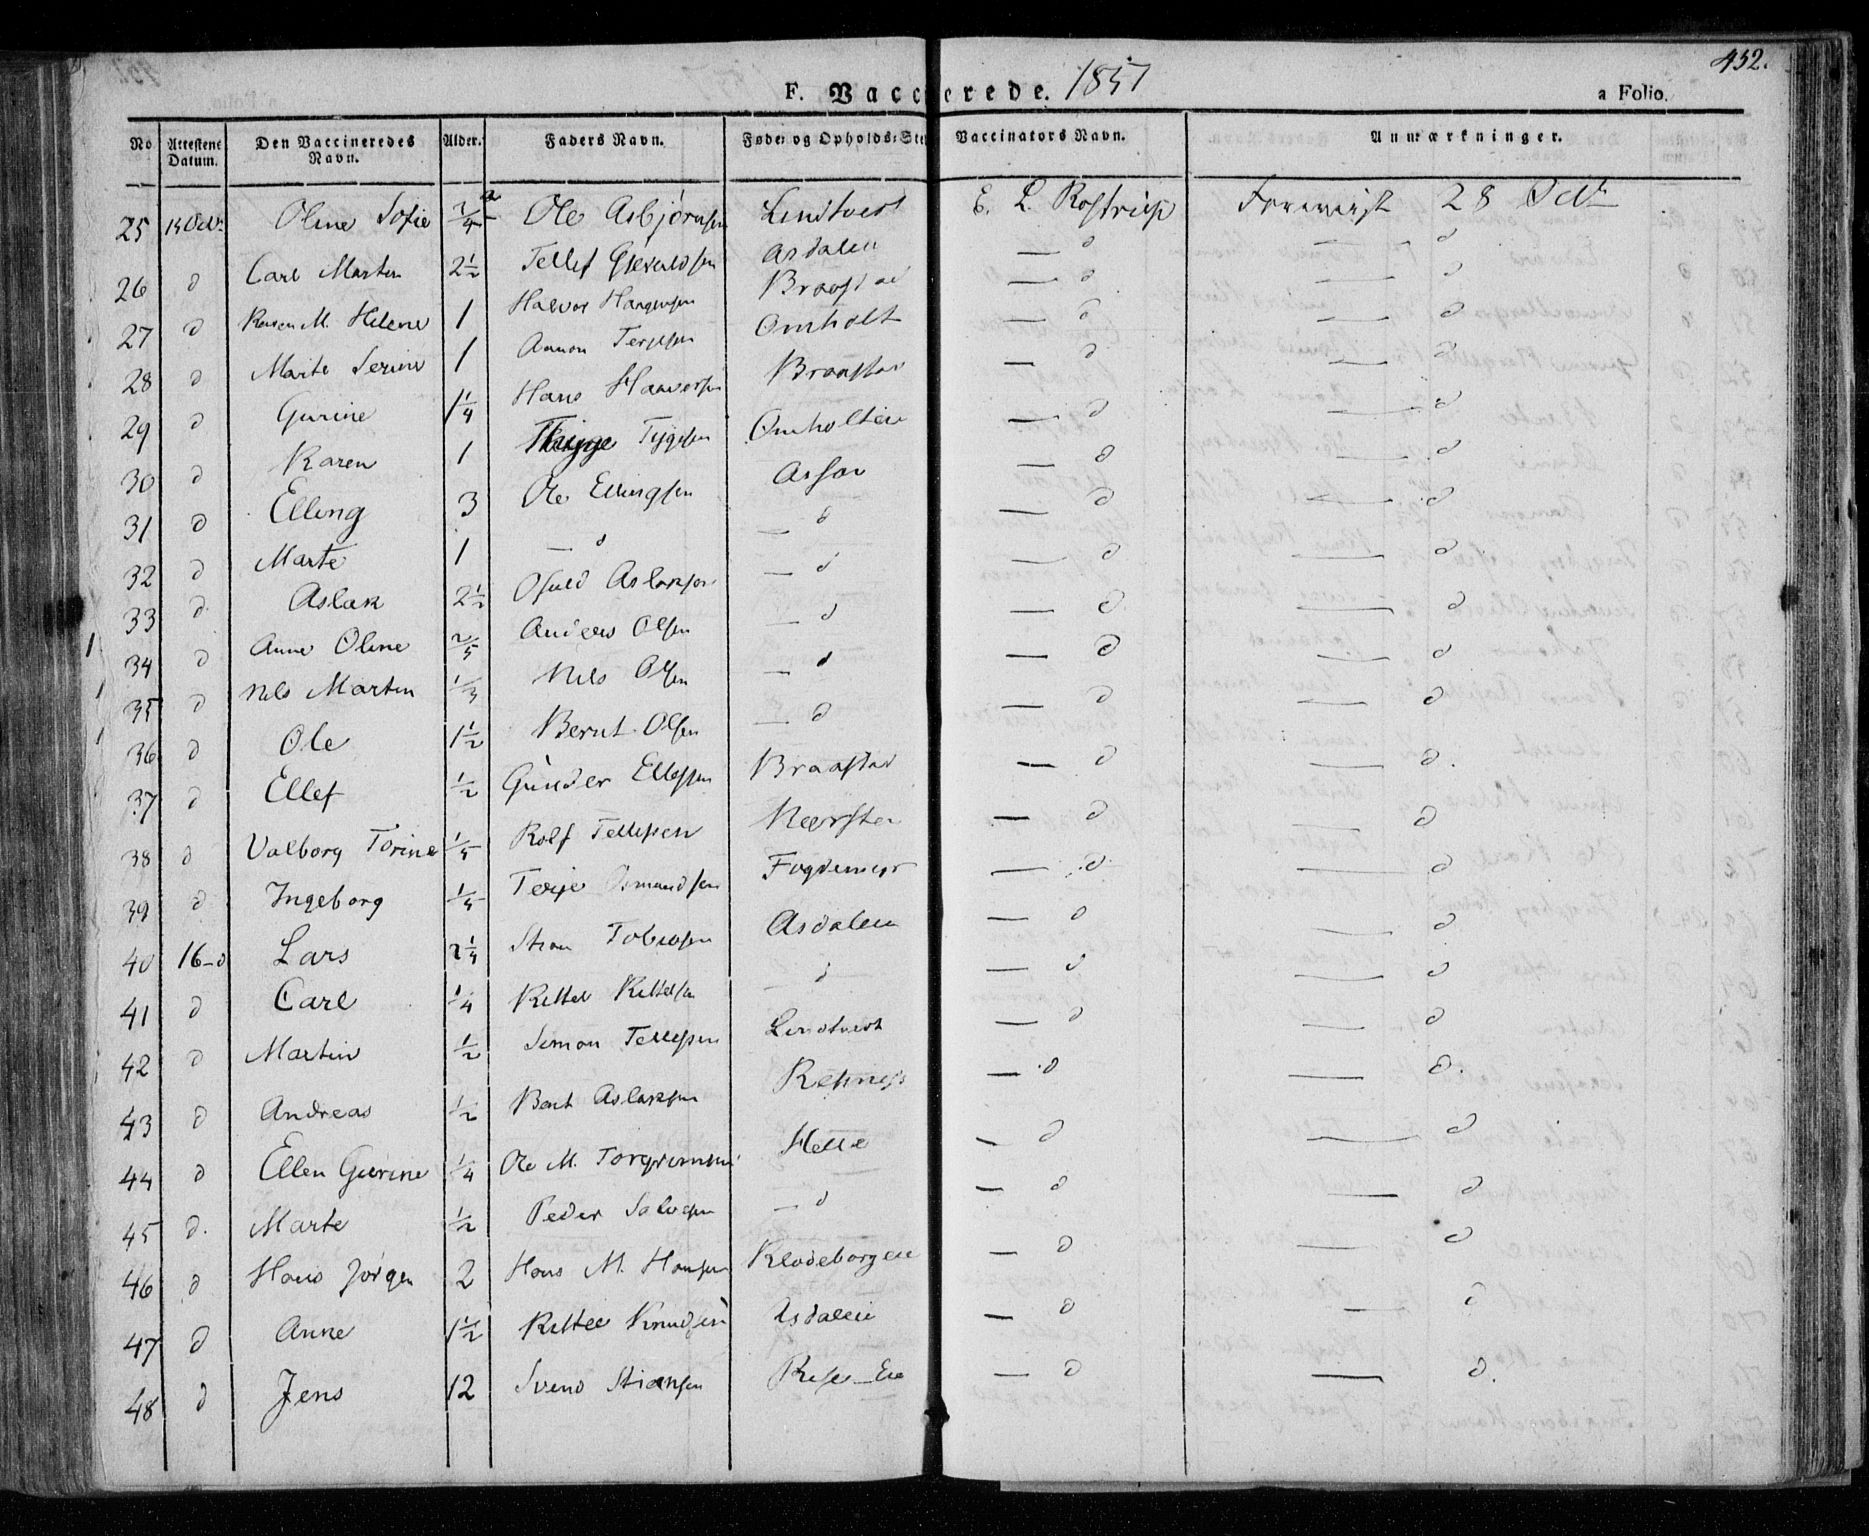 452.
F. Vaccinerede. 1857
a Folio.
No Attestens Datum. Den Vaccineredes Navn. Alder. Faders Navn. Føde- og Opholds-Sted Vaccinators Navn. Anmærkninger.
25 15 Octr Oline Sofie Ole Asbjørnsen Lindtveit E. L. Forevist 28 Octr
26 d Carl Martin 2½ Tellef Asdalen — d — d
27 d Karen M. Helene 1 Halvor Braastad — d — d
28 d Marte Serine 1 Aanon Terjesen Omholt — d — d
29 d Gurine 1¼ Hans Braastad — d — d
30 d Karen 1 Tygesen Omholten — d — d
31 d Elling 3 Ole Ellingsen — d — d
32 d Marte 1 — d — d — d — d
33 d Aslak 2½ Osuld Aslaksen — d — d — d
34 d Anne Oline 2/5 Anders Olsen — d — d — d
35 d Nils Martin 1/3 Nils Olsen — d — d — d
36 d Ole 1½ Bernt Olsen — d — d — d
37 d Ellef ½ Gunder Ellefsen Braastad — d — d.
38 d Valborg Torine 1/5 Rolf Tellefsen Nærsten — d — d
39 d Ingeborg 1/5 Terje Osmundsen — d — d
40 16 - d Lars 2¼ Stian Tobiasen Asdalen — d — d
41 d Carl ¼ Kittel Kittelsen d — d — d
42 d Martin ½ Simon Tellefsen Lindtveit — d — d
43 d Andreas ½ Bent Aslaksen — d — d.
44 d Ellen Gurine ¼ Ole M. Torgrimsen Helle — d — d
45 d. Marte ½ Peder Salvesen — d — d — d
46 d Hans Jørgen 2 Hans M. Hansen Klodeborgen — d — d
47 d Anne 1½ Kittel Knudsen Asdalen — d — d
48 d Jens 12 Svend Stiansen — d — d.